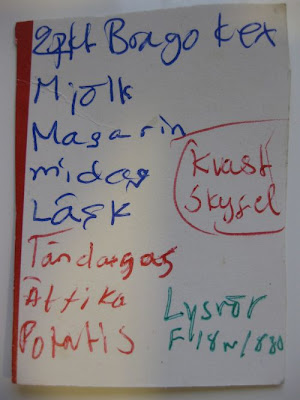 2pkt Brago kex
Mjölk
Magarin
middag
Läsk
Kvast
Skyfel
Tändargas
Ättika
Potatis
Lysrör
F18w/880